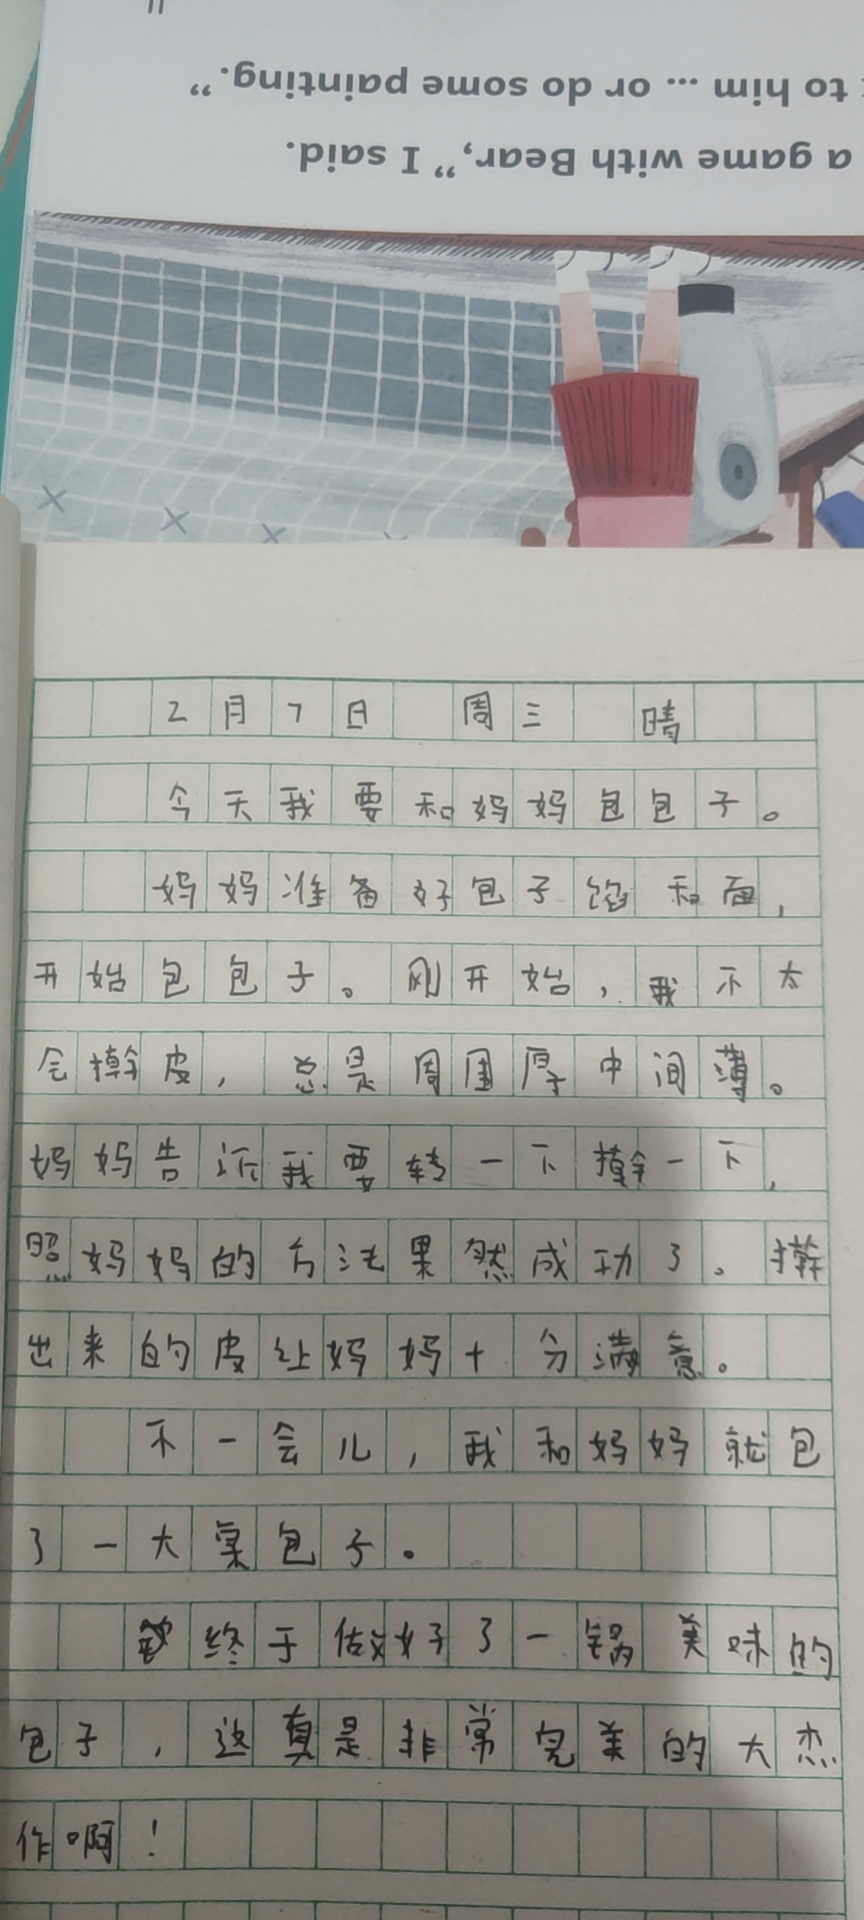 to him ... or do some painting.”
a game with Bear,” I said.
2月7日 周三 晴
今天我要和妈妈包包子。
妈妈准备好包子馅和面,
开始包包子。刚开始,我不太
会擀皮,总是周围厚中间薄。
妈妈告诉我要转一下擀一下,
照妈妈的方法果然成功了。擀
出来的皮让妈妈十分满意。
不一会儿,我和妈妈就包
了一大案包子。
终于做好了一锅美味的
包子,这真是非常完美的大杰
作啊!